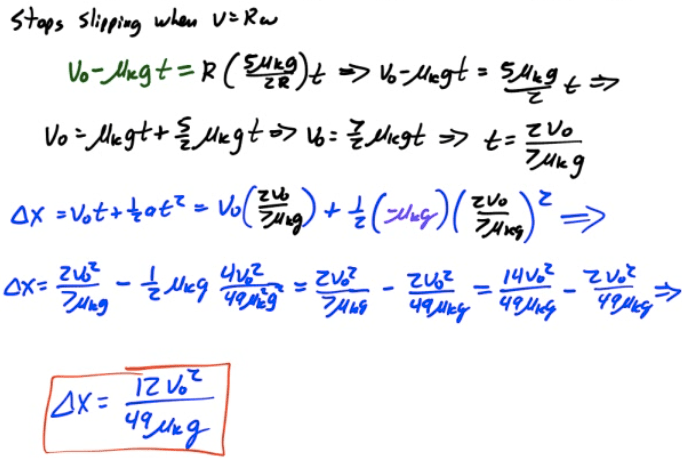 Stops slipping when v=Rω
v₀-μₖgt = R(5μₖg/2R)t ⇒ v₀-μₖgt = 5μₖg/2 t ⇒
v₀ = μₖgt + 5/2 μₖgt ⇒ v₀ = 7/2 μₖgt ⇒ t = 2v₀/7μₖg
Δx = v₀t + ½at² = v₀(2v₀/7μₖg) + ½(-μₖg)(2v₀/7μₖg)² ⇒
Δx = 2v₀²/7μₖg - ½ μₖg 4v₀²/49μₖ²g² = 2v₀²/7μₖg - 2v₀²/49μₖg = 14v₀²/49μₖg - 2v₀²/49μₖg ⇒
Δx = 12v₀²/49μₖg